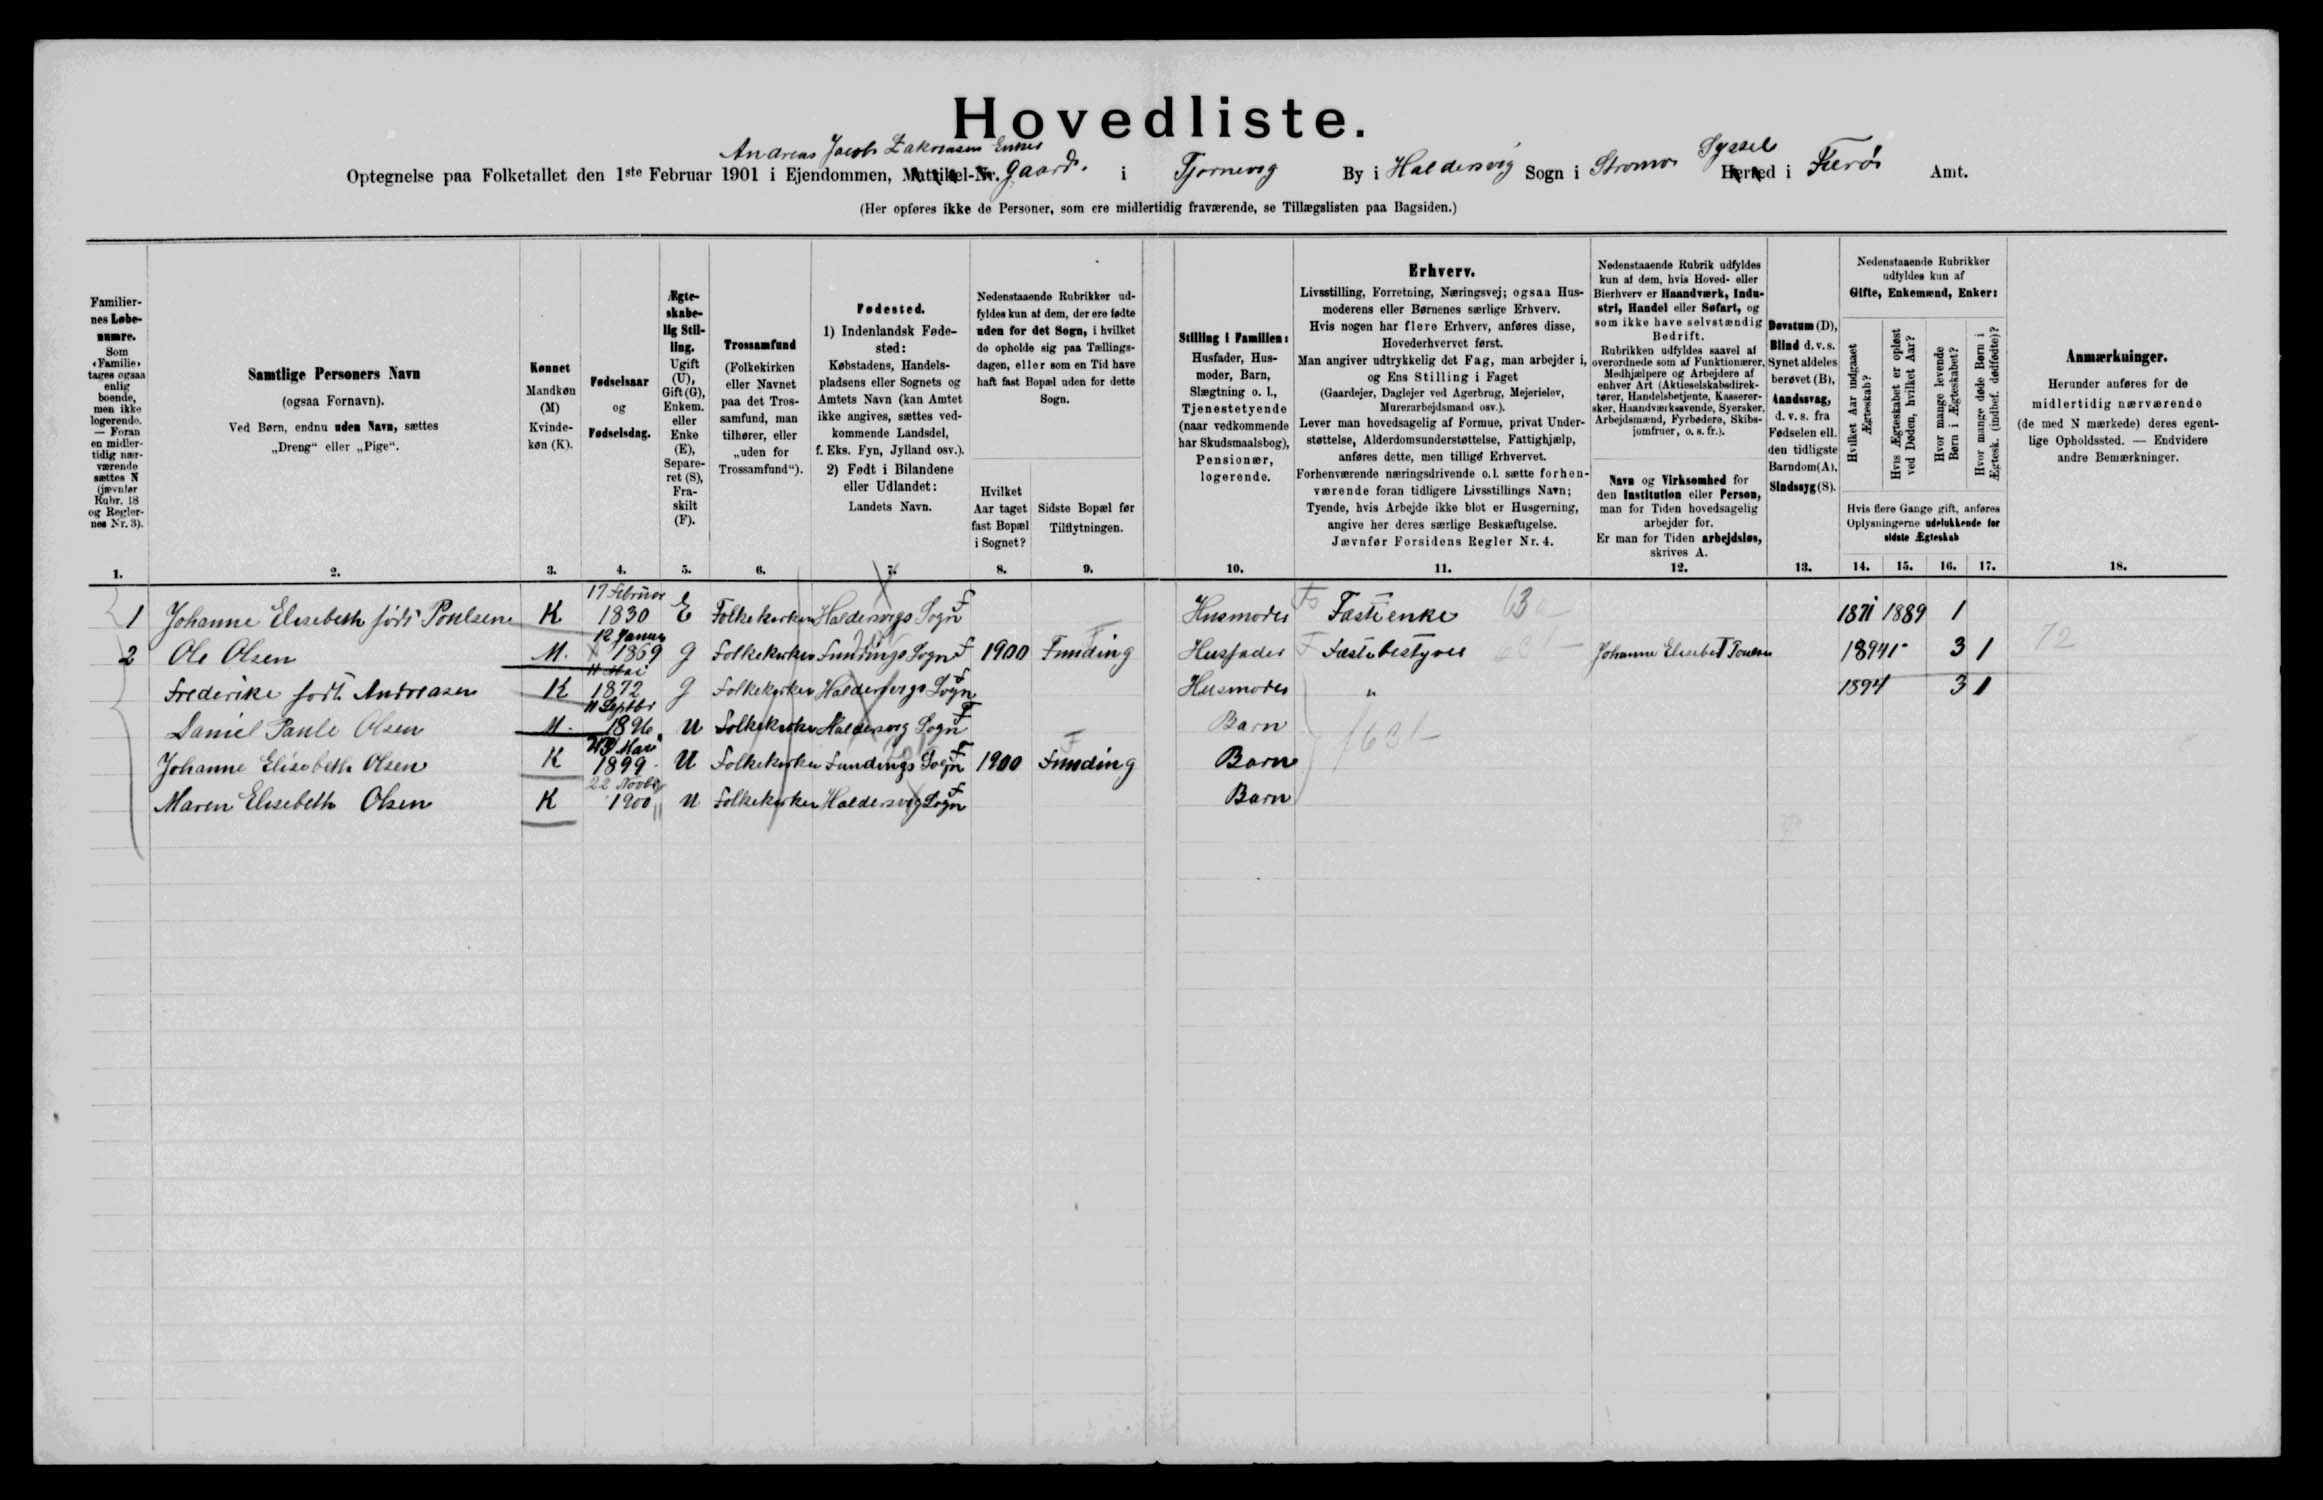 Hovedliste.
Andreas Jacob Zakrisasen Enkes
Optegnelse paa Folketallet den 1ste Februar 1901 i Ejendommen, Matrikel-Nr. Gaard. i Tjornevig By i Haldersvig Sogn i Stromø Syssel Herred i Færø Amt.
(Her opføres ikke de Personer, som ere midlertidig fraværende, se Tillægslisten paa Bagsiden.)
Familiernes Løbenumre.
Som «Familie» tages ogsaa enlig boende, men ikke logerende. — Foran en midlertidig nærværende sættes N (jævnfør Rubr. 18 og Reglernes Nr. 3).
Samtlige Personers Navn
(ogsaa Fornavn).
Ved Børn, endnu uden Navn, sættes
„Dreng“ eller „Pige“.
Kønnet
Mandkøn (M)
Kvindekøn (K).
Fødselsaar
og
Fødselsdag.
Ægteskabelig Stilling.
Ugift (U), Gift (G), Enkem. eller Enke (E), Separeret (S), Fraskilt (F).
Trossamfund
(Folkekirken eller Navnet paa det Trossamfund, man tilhører, eller „uden for Trossamfund“).
Fødested.
1) Indenlandsk Fødested:
Købstadens, Handelspladsens eller Sognets og Amtets Navn (kan Amtet ikke angives, sættes vedkommende Landsdel, f. Eks. Fyn, Jylland osv.).
2) Født i Bilandene eller Udlandet:
Landets Navn.
Nedenstaaende Rubrikker udfyldes kun af dem, der ere fødte uden for det Sogn, i hvilket de opholde sig paa Tællingsdagen, eller som en Tid have haft fast Bopæl uden for dette Sogn.
Hvilket Aar taget fast Bopæl i Sognet?
Sidste Bopæl før Tilflytningen.
Stilling i Familien:
Husfader, Husmoder, Barn, Slægtning o. l., Tjenestetyende (naar vedkommende har Skudsmaalsbog), Pensionær, logerende.
Erhverv.
Livsstilling, Forretning, Næringsvej; ogsaa Husmoderens eller Børnenes særlige Erhverv.
Hvis nogen har flere Erhverv, anføres disse, Hovederhvervet først.
Man angiver udtrykkelig det Fag, man arbejder i, og Ens Stilling i Faget
(Gaardejer, Daglejer ved Agerbrug, Mejerielev, Murerarbejdsmand osv.).
Lever man hovedsagelig af Formue, privat Understøttelse, Alderdomsunderstøttelse, Fattighjælp, anføres dette, men tillige Erhvervet.
Forhenværende næringsdrivende o. l. sætte forhenværende foran tidligere Livsstillings Navn;
Tyende, hvis Arbejde ikke blot er Husgerning, angive her deres særlige Beskæftigelse.
Jævnfør Forsidens Regler Nr. 4.
Nedenstaaende Rubrik udfyldes kun af dem, hvis Hoved- eller Bierhverv er Haandværk, Industri, Handel eller Søfart, og som ikke have selvstændig Bedrift.
Rubrikken udfyldes saavel af overordnede som af Funktionærer, Medhjælpere og Arbejdere af enhver Art (Aktieselskabsdirektører, Handelsbetjente, Kasserersker, Haandværkssvende, Syersker, Arbejdsmænd, Fyrbødere, Skibsjomfruer, o. s. fr.).
Navn og Virksomhed for den Institution eller Person, man for Tiden hovedsagelig arbejder for.
Er man for Tiden arbejdsløs, skrives A.
Døvstum (D),
Blind d. v. s. Synet aldeles berøvet (B),
Aandssvag, d. v. s. fra Fødselen ell. den tidligste Barndom (A),
Sindssyg (S).
Nedenstaaende Rubrikker udfyldes kun af
Gifte, Enkemænd, Enker:
Hvilket Aar indgaaet Ægteskab?
Hvis Ægteskabet er opløst ved Døden, hvilket Aar?
Hvor mange levende Børn i Ægteskabet?
Hvor mange døde Børn i Ægtesk. (indbef. dødfødte)?
Hvis flere Gange gift, anføres Oplysningerne udelukkende for sidste Ægteskab
Anmærkninger.
Herunder anføres for de midlertidig nærværende (de med N mærkede) deres egentlige Opholdssted. — Endvidere andre Bemærkninger.
1. 2. 3. 4. 5. 6. 7. 8. 9. 10. 11. 12. 13. 14. 15. 16. 17. 18.
1 Johanne Elisebeth født Poulsen K 17 Februar 1830 E Folkekirken Haldersvigs Sogn F Husmoder Fæsteenke 1871 1889 1
2 Ole Olsen M. 12 Januar 1869 G Folkekirken Fundings Sogn F 1900 Funding Husfader F Fæstebestyrer Johanne Elisebet Poulsen 1894 3 1 72
Frederike født Andreasen K 11 Mai 1872 G Folkekirken Haldersvigs Sogn Husmoder " 1894 3 1
Daniel Paule Olsen M. 11 Septbr 1896 U Folkekirken Haldersvig Sogn F Barn
Johanne Elisebeth Olsen K Mai 1899 U Folkekirken Fundings Sogn F 1900 Funding Barn
Maren Elisebeth Olsen K 22 Novbr 1900 U Folkekirken Haldersvig Sogn F Barn